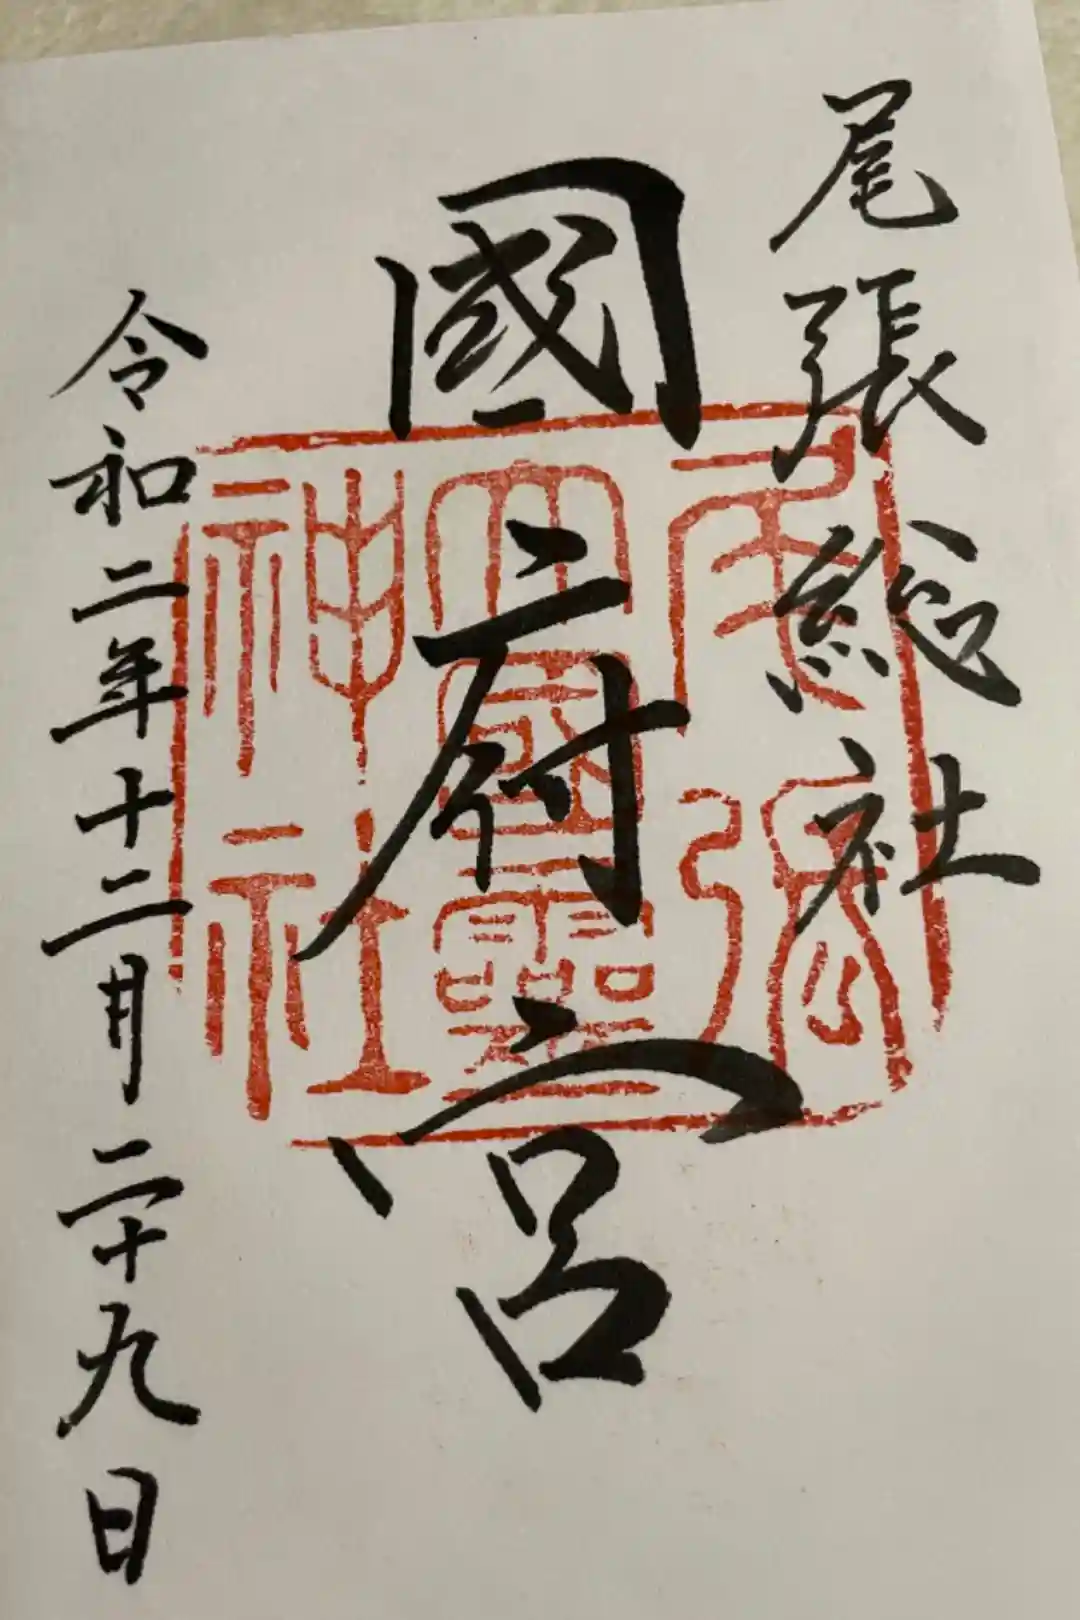 尾張総社
國府宮
令和二年十二月二十九日
尾張
大國霊
神社